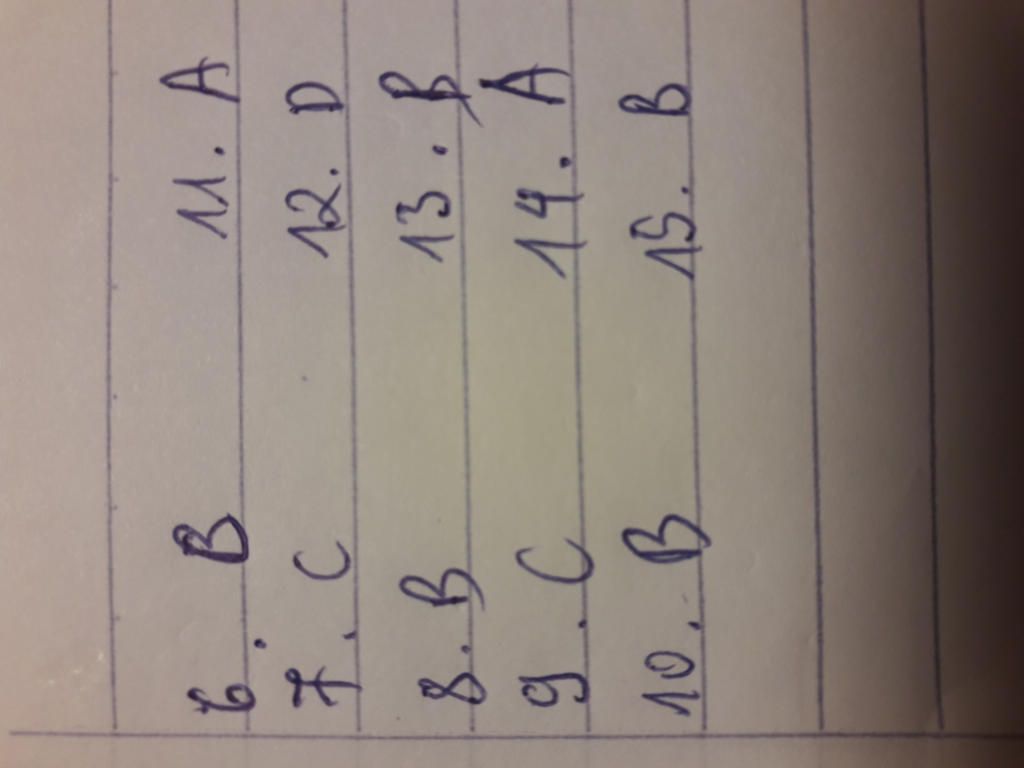 6. B 11. A
7. C 12. D
8. B 13. B
9. C 14. A
10. B 15. B